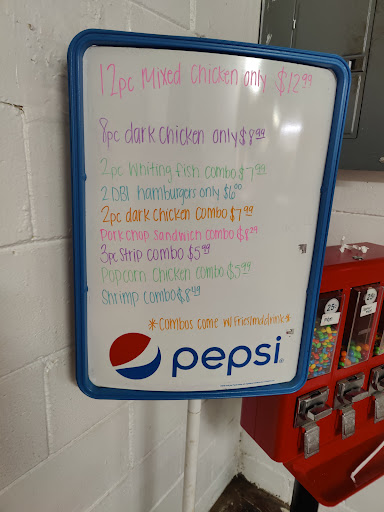 12pc mixed chicken only $12.99
8pc dark chicken only $8.99
2pc whiting fish combo $7.99
2 DBl hamburgers only $6.00
2pc dark chicken combo $7.99
Pork chop sandwich combo $8.29
3pc strip combo $5.99
Popcorn chicken combo $5.99
Shrimp combo $8.49
*Combos come w/ fries/mddrink*
pepsi
25¢
25¢